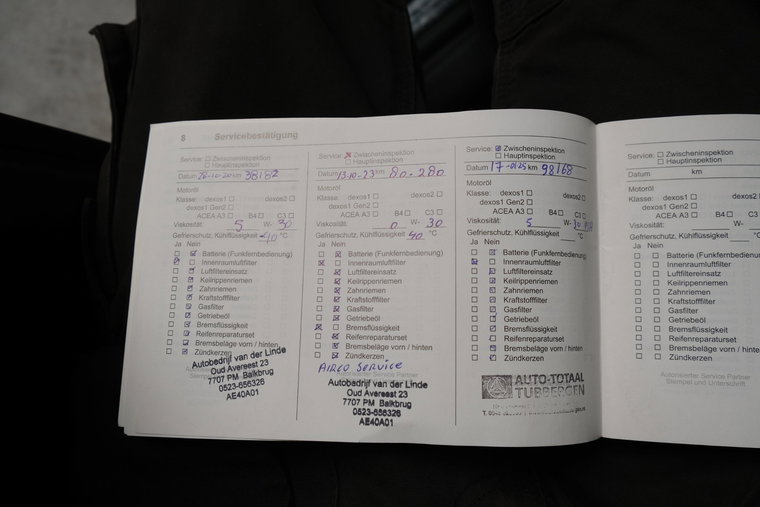 8 Servicebestätigung
Service: □ Zwischeninspektion
□ Hauptinspektion
Datum 26-10-20 km 38182
Motoröl
Klasse: dexos1 □ dexos2 □
dexos1 Gen2 □
ACEA A3 □ B4 □ C3 □
Viskosität: 5 W- 30
Gefrierschutz, Kühlflüssigkeit -40 °C
Ja Nein
Batterie (Funkfernbedienung)
Innenraumluftfilter
Luftfiltereinsatz
Keilrippenriemen
Zahnriemen
Kraftstofffilter
Gasfilter
Getriebeöl
Bremsflüssigkeit
Reifenreparaturset
Bremsbeläge vorn / hinten
Zündkerzen
Autobedrijf van der Linde
Oud Avereest 23
7707 PM Balkbrug
0523-656326
AE40A01
Service: Zwischeninspektion
□ Hauptinspektion
Datum 13-10-23 km 80.280
Motoröl
Klasse: dexos1 □ dexos2 □
dexos1 Gen2 □
ACEA A3 □ B4 □ C3 □
Viskosität: 0 W- 30
Gefrierschutz, Kühlflüssigkeit 40 °C
Ja Nein
Batterie (Funkfernbedienung)
Innenraumluftfilter
Luftfiltereinsatz
Keilrippenriemen
Zahnriemen
Kraftstofffilter
Gasfilter
Getriebeöl
Bremsflüssigkeit
Reifenreparaturset
Bremsbeläge vorn / hinten
Zündkerzen
AIRCO SERVICE
Autorisierter Service Partner
Autobedrijf van der Linde
Oud Avereest 23
7707 PM Balkbrug
0523-656326
AE40A01
Service: Zwischeninspektion
□ Hauptinspektion
Datum 17-01-25 km 98168
Motoröl
Klasse: dexos1 □ dexos2 □
dexos1 Gen2 □
ACEA A3 □ B4 □ C3 □
Viskosität: 5 W- 30
Gefrierschutz, Kühlflüssigkeit °C
Ja Nein
Batterie (Funkfernbedienung)
Innenraumluftfilter
Luftfiltereinsatz
Keilrippenriemen
Zahnriemen
Kraftstofffilter
Gasfilter
Getriebeöl
Bremsflüssigkeit
Reifenreparaturset
Bremsbeläge vorn / hinten
Zündkerzen
AUTO-TOTAAL
TUBBERGEN
Service: □ Zwischeninspektion
□ Hauptinspektion
Datum km
Motoröl
Klasse: dexos1 □
dexos1 Gen2 □
ACEA A3 □ B4 □
Viskosität:
Gefrierschutz, Kühlflüssigkeit
Ja Nein
Batterie (Funkfernbedienung)
Innenraumluftfilter
Luftfiltereinsatz
Keilrippenriemen
Zahnriemen
Kraftstofffilter
Gasfilter
Getriebeöl
Bremsflüssigkeit
Reifenreparaturset
Bremsbeläge vorn / hinten
Zündkerzen
Autorisierter Service Partner
Stempel und Unterschrift